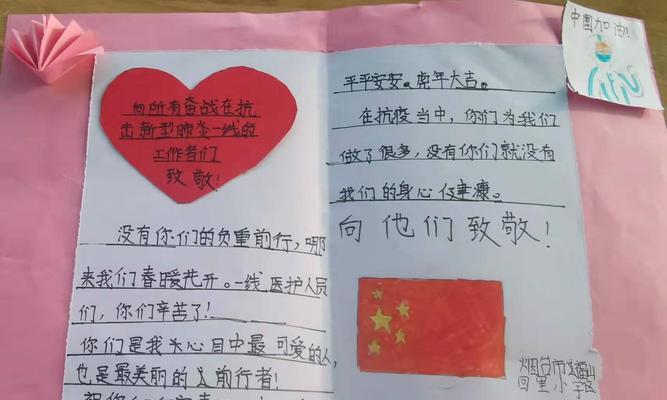 向所有奋战在抗
击新型肺炎一线的
工作者们
致敬!
没有你们的负重前行,哪
来我们春暖花开。一线医护人员
们,你们辛苦了!
你们是我关心目中最可爱的人,
也是最美丽的逆前行者!
中国加油!
平平安安。虎年大吉。
在抗疫当中,你们为我们
做了很多,没有你们就没有
我们的身心健康。
向他们致敬!
烟台市福山区
回里小学